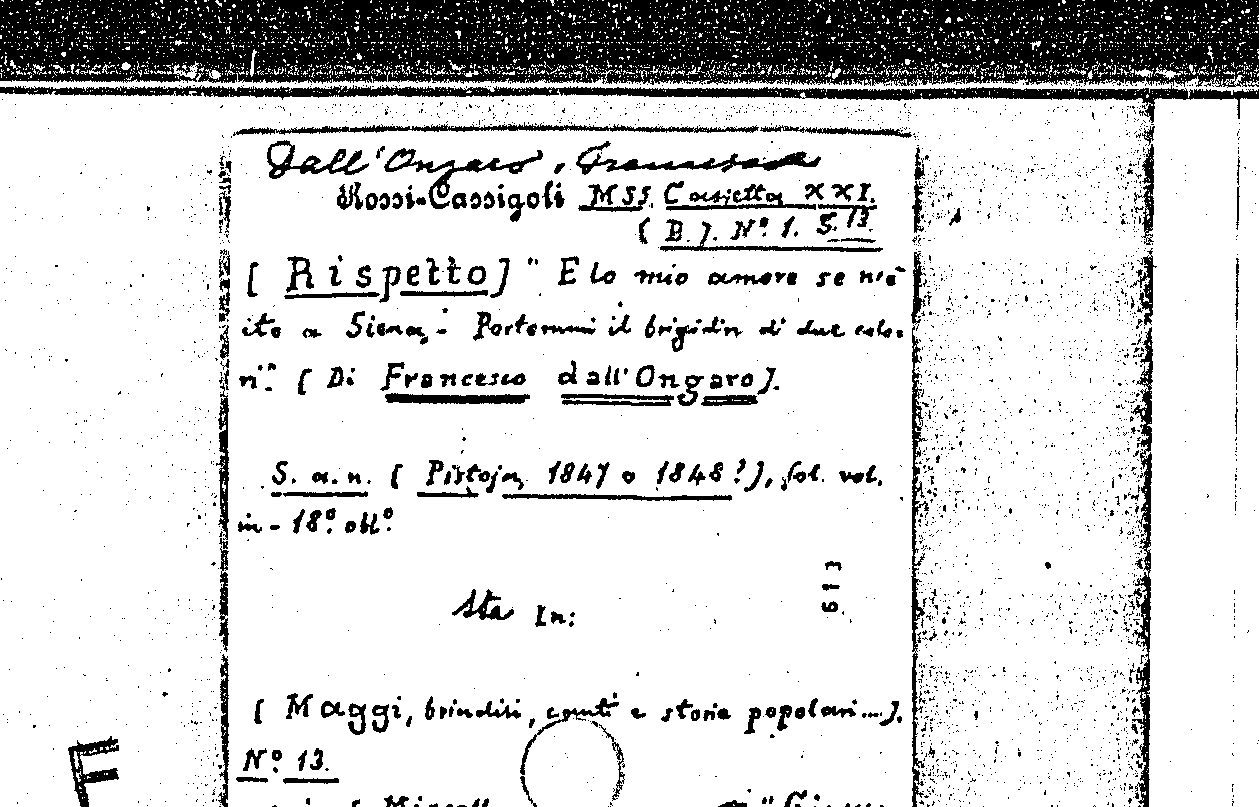 Dall'Ongaro, Francesco
Rossi-Cassigoli MSS. Cassetta XXI.
[ B.]. Nº. 1. S. 13.
[ Rispetto] " E lo mio amore se n'è
ito a Siena, - Portommi il brigidin di due colo-
ri". [ Di Francesco dall'Ongaro].
S. a. n. [ Pistoja, 1847 o 1848?], fol. vol.
in - 18º. obl.º
Sta In:
613
[ Maggi, brindisi, canti e storie popolari...].
Nº. 13.
F